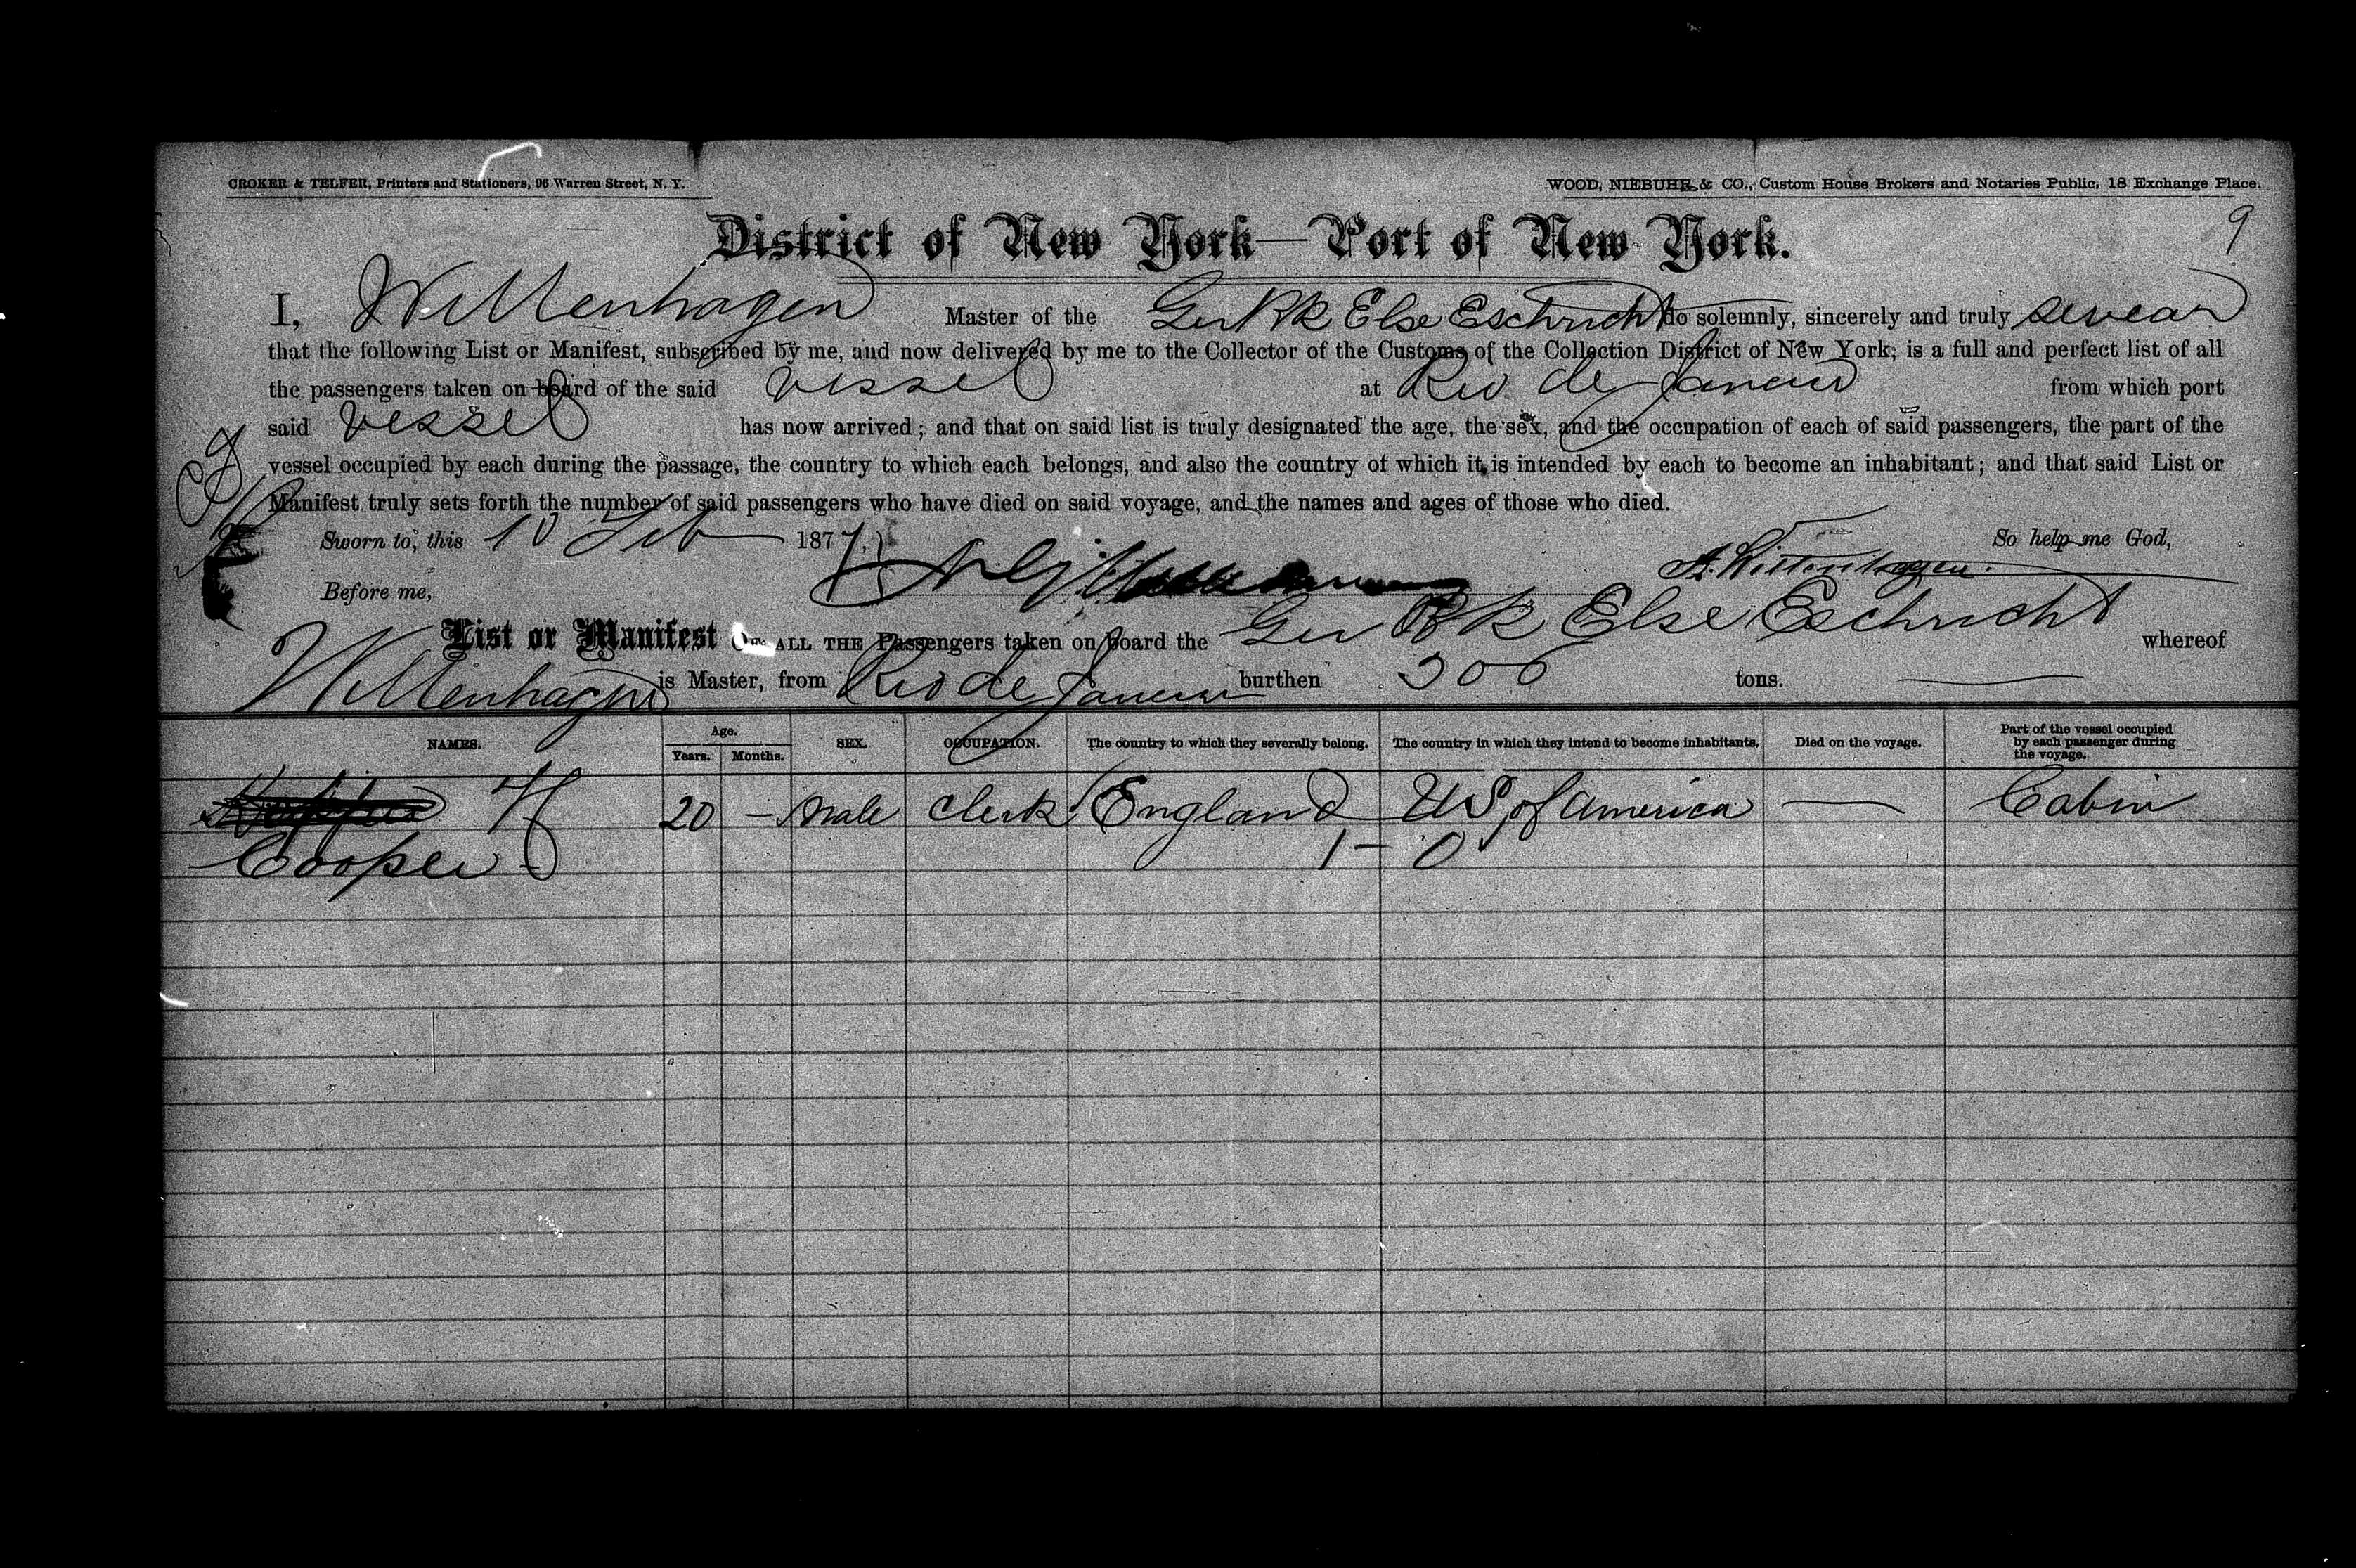 CROKER & TELFER, Printers and Stationers, 96 Warren Street, N. Y.
WOOD, NIEBUHR & CO., Custom House Brokers and Notaries Public, 18 Exchange Place.
9
District of New York—Port of New York.
I, Wittenhagen Master of the Ger Bk Else Eschricht do solemnly, sincerely and truly swear
that the following List or Manifest, subscribed by me, and now delivered by me to the Collector of the Customs of the Collection District of New York, is a full and perfect list of all
the passengers taken on board of the said vessel at Rio de Janeiro from which port
said vessel has now arrived; and that on said list is truly designated the age, the sex, and the occupation of each of said passengers, the part of the
vessel occupied by each during the passage, the country to which each belongs, and also the country of which it is intended by each to become an inhabitant; and that said List or
Manifest truly sets forth the number of said passengers who have died on said voyage, and the names and ages of those who died.
Sworn to, this 10 Feb 1877, So help me God,
A. Wittenhagen.
Before me,
List or Manifest OF ALL THE Passengers taken on board the Ger Bk Else Eschricht whereof
Wittenhagen is Master, from Rio de Janeiro burthen 300 tons.
NAMES. Age. Years. Months. SEX. OCCUPATION. The country to which they severally belong. The country in which they intend to become inhabitants. Died on the voyage. Part of the vessel occupied by each passenger during the voyage.
H 20 — Male Clerk England US of America — Cabin
Cooper 1 — 0